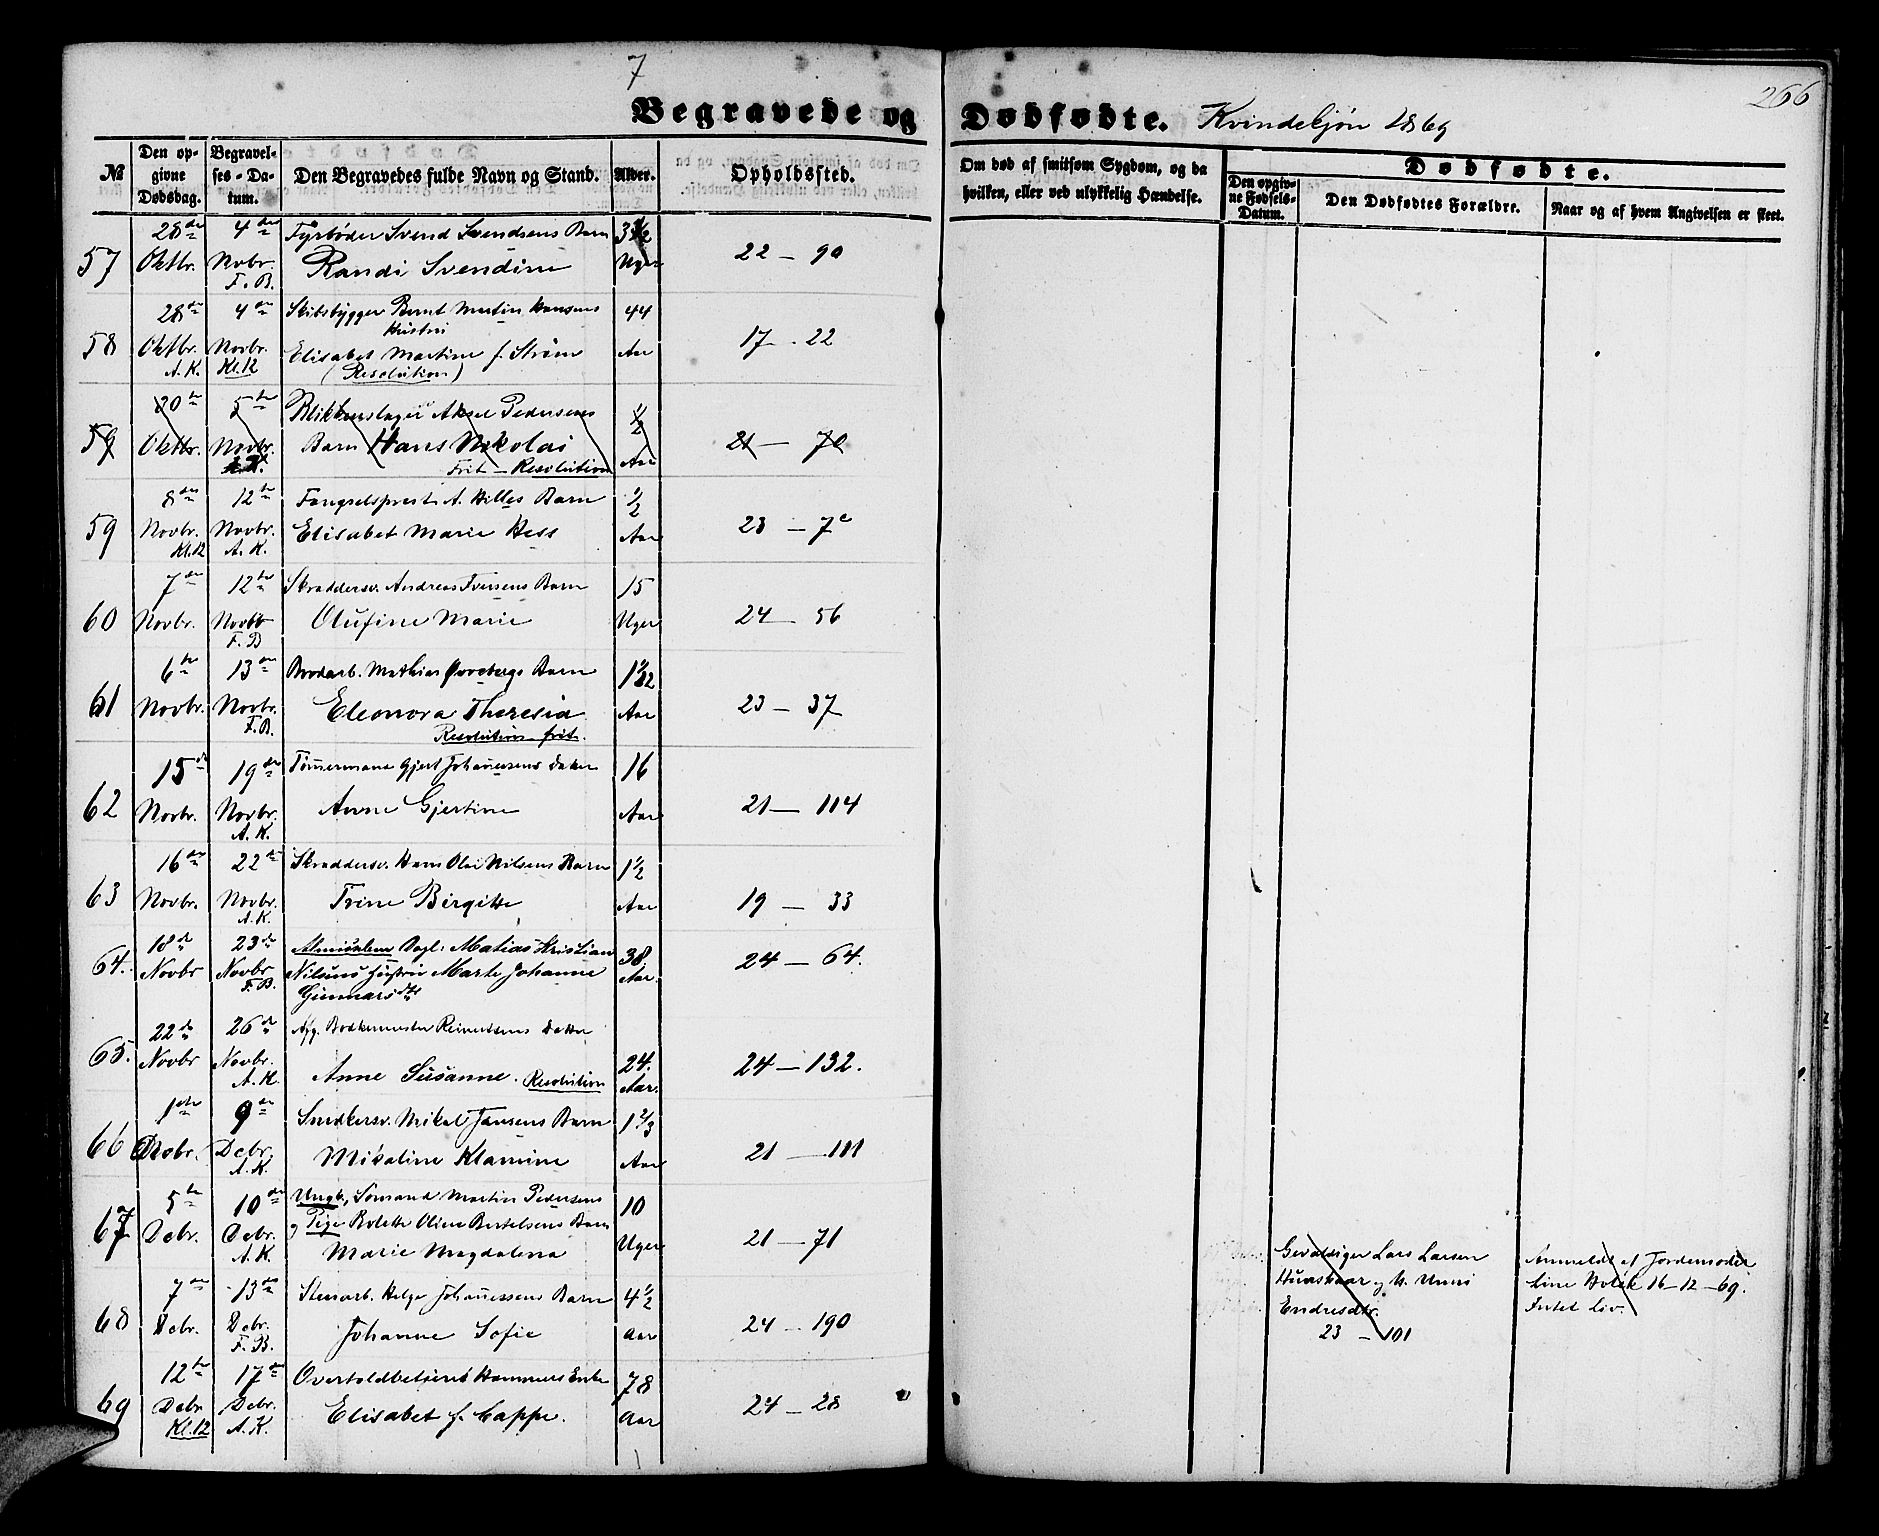 7
266
Begravede og Dødfødte. Kvindekjøn 1869
№
Den opgivne Dødsdag.
Begravelses-Datum.
Den Begravedes fulde Navn og Stand.
Alder.
Opholdssted.
Om død af smitsom Sygdom, og da hvilken, eller ved ulykkelig Hændelse.
Dødfødte.
Den opgivne Fødsels-Datum.
Den Dødfødtes Forældre.
Naar og af hvem Angivelsen er skeet.
28de 4de Fyrbøder Svend Svendsens Barn 3 1/2
57 Oktbr. Novbr. Randi Svendine Uger 22 — 90
F. B.
28de 4de Skibsbygger Bernt Martin Hansens 44
Hustru
58 Oktbr. Novbr. Elisabet Martine f. Strøm Aar 17 - 22
A. K. Kl. 12 (Resolution)
30te 5te Blikkenslager Aksel Pedersens 1/2
59 Oktbr. Novbr. Barn Hans Nikolai Aar 21 — 70
Frit — Resolution
8de 12te Fængselsprest A. Hilles Barn 1/2
59 Novbr. Novbr. Elisabet Marie Hess Aar 23 — 7c
Kl. 12 A. K.
7de 12te Skræddersv. Andreas Iversens Barn 15
60 Novbr. Novbr Olufine Marie Uger 24 — 56
F. B
6te 13de Mathias Barn 1 1/2
61 Novbr. Novbr. Eleonora Theresia Aar 23 — 37
F. B. Resolution frit.
15de 19de Tømmermand Gjert Johannesens Datter 16
62 Novbr. Novbr. Anne Gjertine Aar 21 — 114
A. K.
16de 22de Skræddersv. Hans Olai Nilsens Barn 1 1/2
63 Novbr. Novbr. Trine Birgitte Aar 19 — 33
A. K.
18de 23de Almisselem Dagl: Matias Kristian 38
64. Novbr Novbr Nilsens Hustru Marte Johanne Aar. 24 — 64.
F. B. Gunnarsdtr
22de 26de Afg. Bødkermester Reinertsens Datter
65. Novbr Novbr. Anne Susanne. Resolution 24. Aar. 24 — 132.
A. K.
1ste 9de Snedkersv. Mikal Jansens Barn 1 2/3
66 Decbr. Debr. Mikaline Klamine Aar 21 — 111
A. K.
5te 10de Ungk. Sømand Martin Pedersens 10
67 Debr. Debr. og Pige Bolette Oline Bertelsens Barn
A. K. Marie Magdalena Uger 21 — 71
7de 13de Stenarb. Helge Johannessens Barn 4 1/2
68 Debr. Debr. Johanne Sofie Aar 24 — 190
F. B.
12te 17de Overtoldbetjent Hammers Enke 78
69 Debr Debr. Elisabet f. Cappe. Aar 24 — 28
Kl. 12 A. K.
Gevaldiger Lars Larsen
Huaskaar og H. Unni
Endresdtr.
23 — 101
Anmeldt af Jordemoder
Line Holck 16-12-69.
Intet Liv.